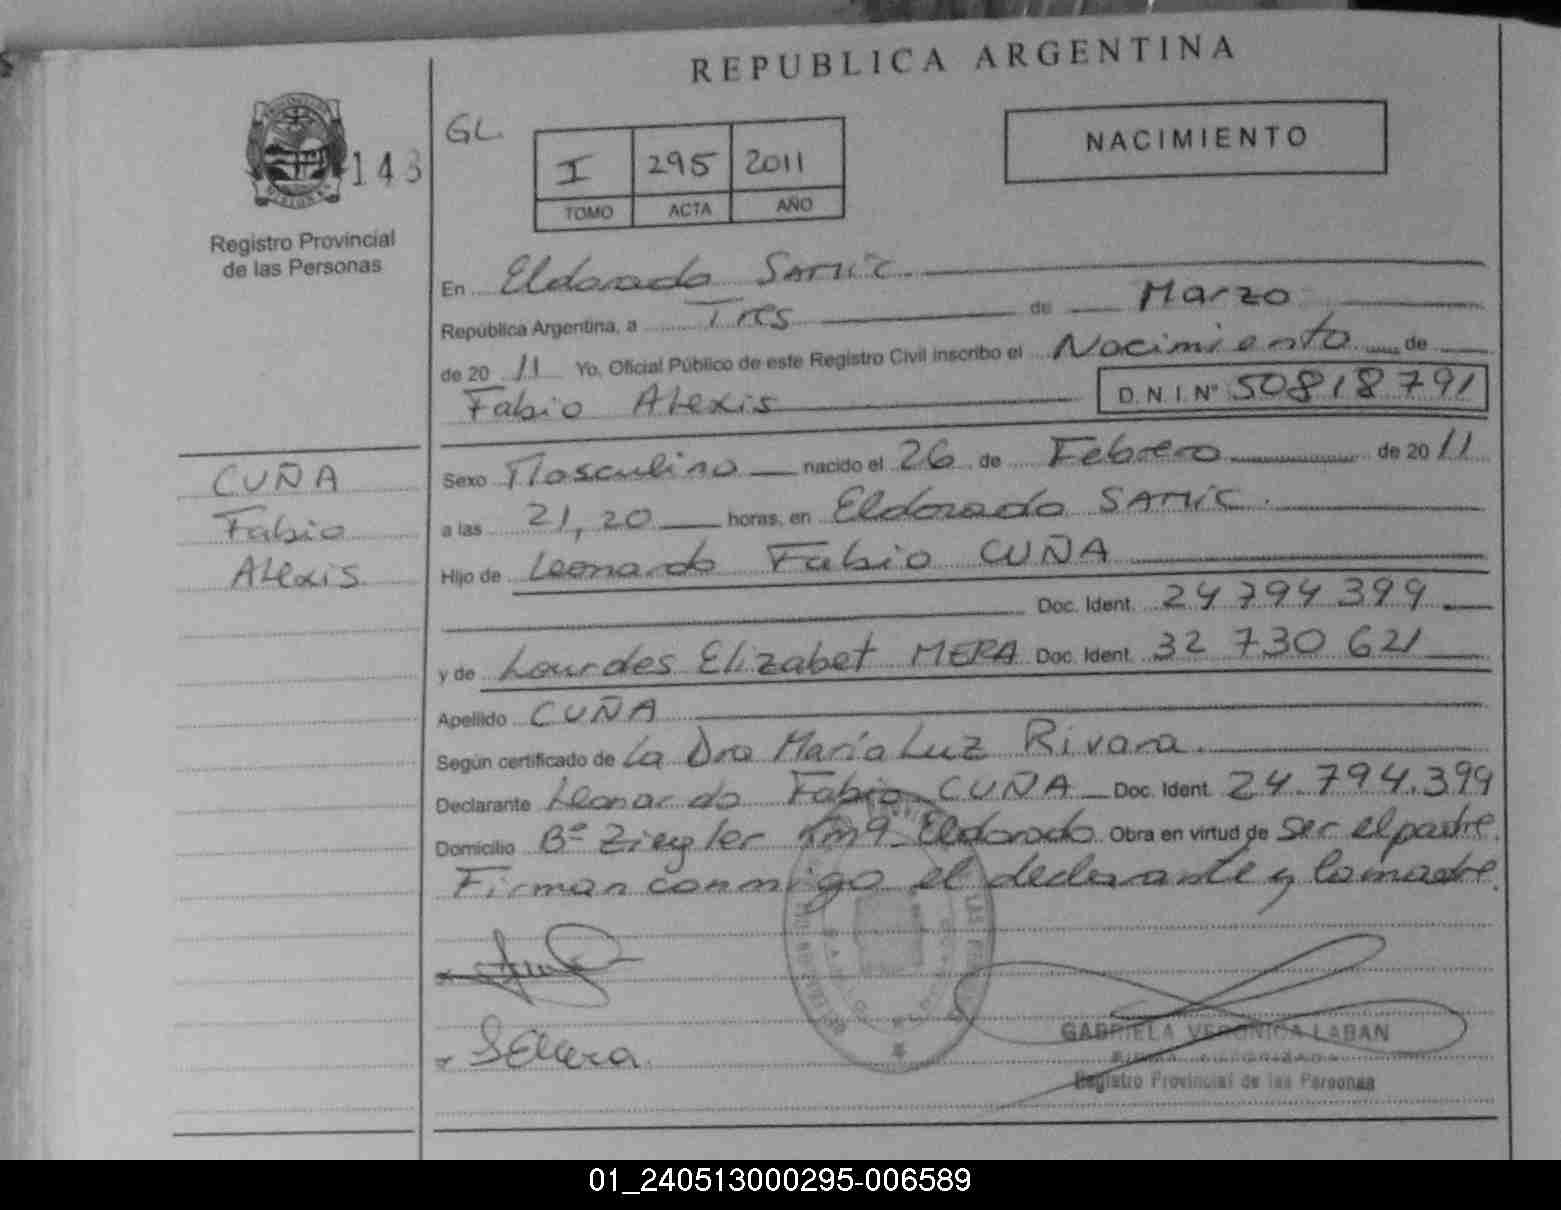 REPUBLICA ARGENTINA
143
Registro Provincial
de las Personas
GL.
I 295 2011
TOMO ACTA AÑO
NACIMIENTO
En Eldorado SAMIC
República Argentina, a Tres de Marzo
de 20 11 Yo, Oficial Público de este Registro Civil inscribo el Nacimiento de
Fabio Alexis D.N.I.Nº 50818791
CUÑA
Fabio
Alexis
Sexo Masculino nacido el 26 de Febrero de 20 11
a las 21,20 horas, en Eldorado SAMIC.
Hijo de Leonardo Fabio CUÑA
Doc. Ident. 24 794 399
y de Lourdes Elizabet MERA Doc. Ident. 32 730 621
Apellido CUÑA
Según certificado de La Dra María Luz Rivara.
Declarante Leonardo Fabio CUÑA Doc. Ident. 24.794.399
Domicilio Bº Ziegler Km 9 Eldorado Obra en virtud de Ser el padre.
Firman conmigo el declarante y la madre.
GABRIELA VERONICA LABAN
Registro Provincial de las Personas
01_240513000295-006589